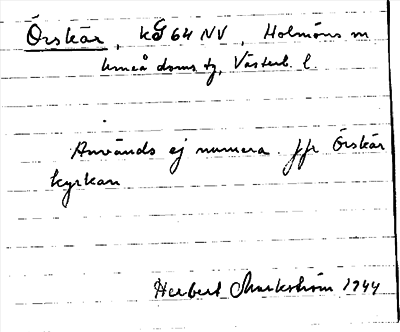 Örskär, kG 64 NV, Holmöns sn
Umeå doms tg, Västerb. l.
Används ej numera. Jfr Örskär
kyrkan
Herbert Markström 1944